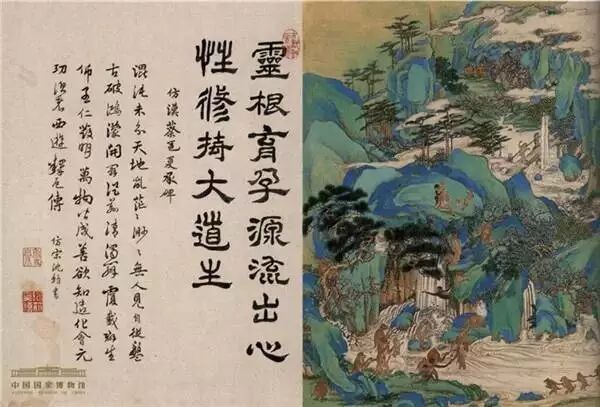 靈根育孕源流出心
性修持大道生
仿漢蔡邕夏承碑
混沌未分天地亂茫〻渺〻無人見自從盤
古破鴻濛開闢從茲清濁辨覆載群生
仰至仁發明萬物皆成善欲知造化會元
功須看西遊釋厄傳
仿宋沈 書
中国国家博物馆
NATIONAL MUSEUM OF CHINA